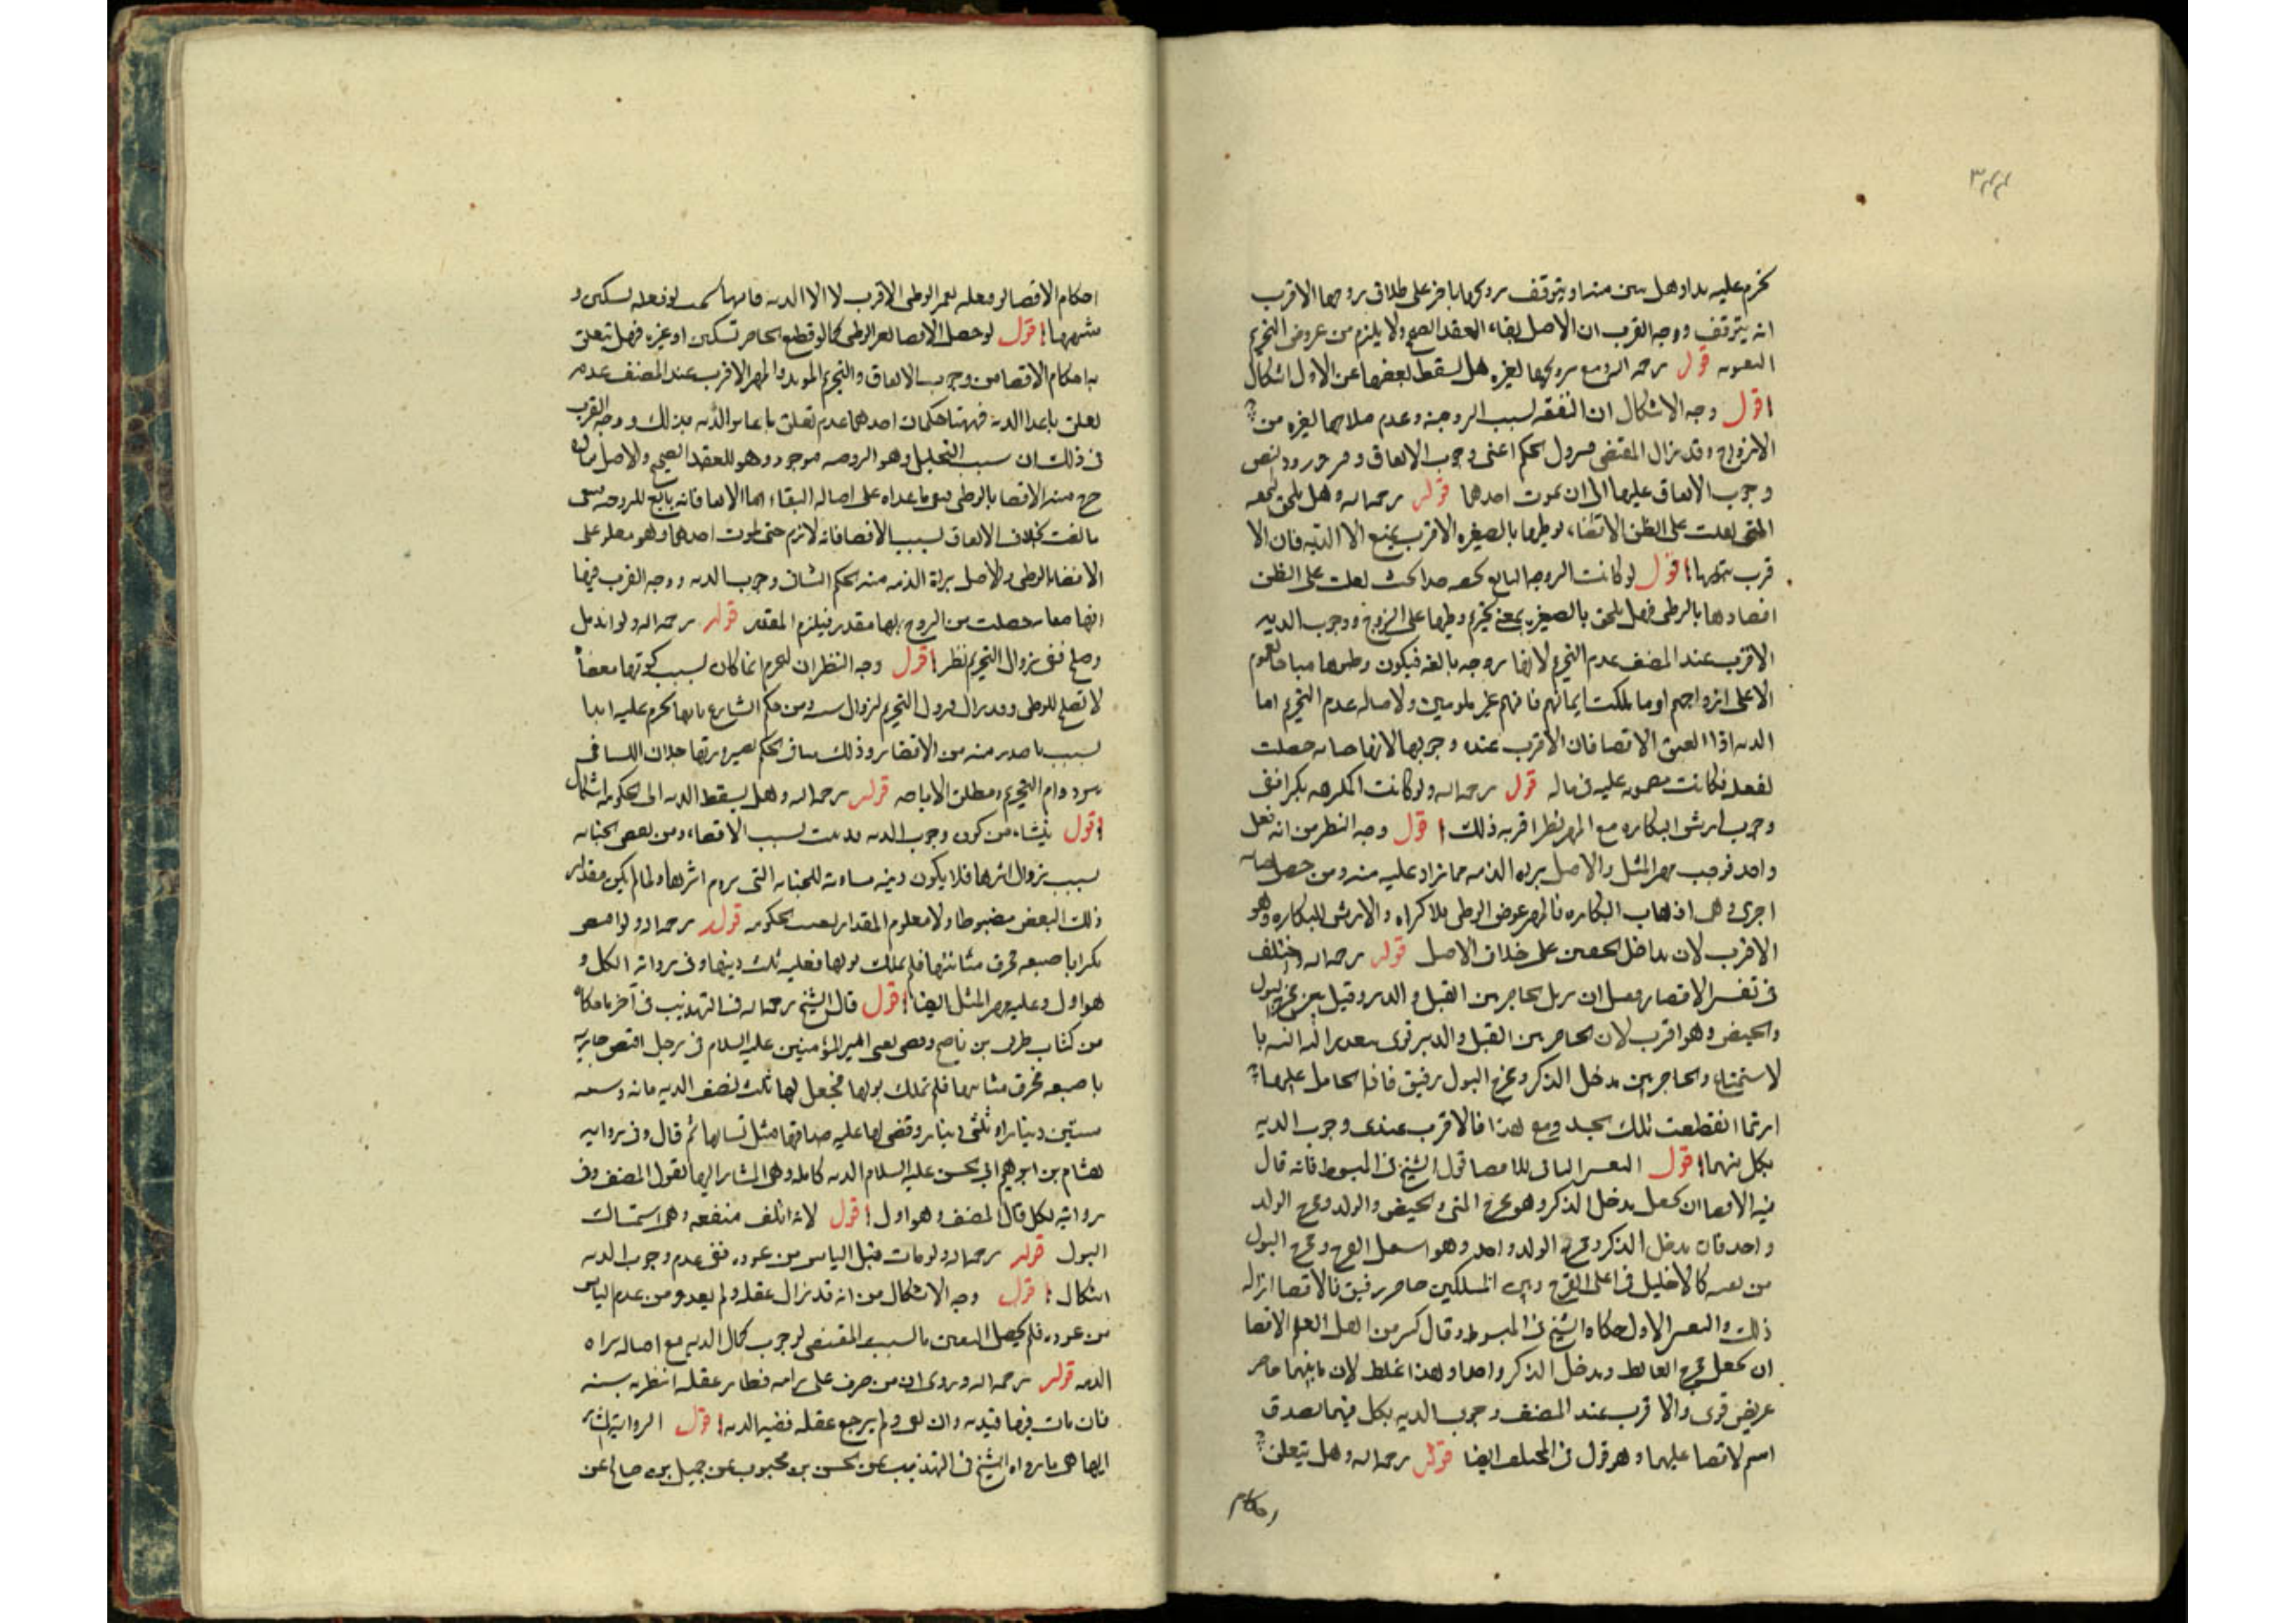 ٣٤٤
يحرم عليه ابدا وهل تبين منه او يتوقف تزويجها باخر على طلاق زوجها الاقرب
انه يتوقف ووجه القرب ان الاصل بقاء العقد الصحيح ولا يلزم من عروض التحريم
البينونه قول رحمه الله ومع تزويجها بغيره هل يسقط بعضها عن الاول اشكال
اقول وجه الاشكال ان النفقه لسبب الزوجية وعدم صلاحها لغيره من
الازواج وقد زال المقتضى فيزول الحكم اعنى وجوب الانفاق ومن ورود النص
وجوب الانفاق عليها الى ان يموت احدهما قوله رحمه الله وهل يلحق
التى يغلب على الظن الافضاء بوطيها بالصغيره الاقرب المنع الا الدية فان الا
قرب ثبوتها اقول لو كانت الزوجه البالغ بحيث يغلب على الظن
افضاؤها بالوطى فهل يلحق بالصغيره بمعنى تحريم وطيها على الزوج ووجوب الديه
الاقرب عند المصنف عدم التحريم لانها زوجه بالغه فيكون وطيها مباحا لعموم
الا على ازواجهم او ما ملكت ايمانهم فانهم غير ملومين ولاصاله عدم التحريم اما
الديه اذا اتفق الافضا فان الاقرب عنده وجوبها لانها جنايه حصلت
بفعله فكانت مضمونه عليه فى ماله قول رحمه الله ولو كانت المكرهه بكرا ففى
وجوب ارش البكاره مع المهر نظر اقربه ذلك اقول وجه النظر من انه فعل
واحد فوجب مهر المثل والاصل براه الذمه مما زاد عليه منه ومن حصول جنايه
اخرى وهى اذهاب البكاره فالمهر عوض الوطى بلا اكراه والارش للبكاره وهو
الاقرب لان تداخل الحقين على خلاف الاصل قوله رحمه الله واختلف
فى تفسير الافضا فقيل ان يزيل الحاجز بين القبل والدبر وقيل بين مخرج البول
والحيض وهو اقرب لان الحاجز بين القبل والدبر قوى يتعذر ازالته با
لاستمتاع والحاجز بين مدخل الذكر ومخرج البول رقيق فاذا تحامل عليها
ربما انقطعت تلك الجلده ومع هذا فالاقرب عندى وجوب الديه
بكل منهما اقول التفسير الثانى للافضا قول الشيخ فى المبسوط فانه قال
فيه الافضا ان يجعل مدخل الذكر وهو مخرج المنى والحيض والولد ومخرج البول
واحد فان مدخل الذكر ومخرج الولد واحد وهو اسفل الفرج ومخرج البول
من ثقبه كالاحليل فى اعلى الفرج وبين المسلكين حاجز رقيق فالافضا ازاله
ذلك والتفسير الاول حكاه الشيخ فى المبسوط وقال كثير من اهل العلم الافضا
ان يجعل مخرج الغائط ومدخل الذكر واحدا وهذا غلط لان ما بينهما حاجز
عريض قوى والاقرب عند المصنف وجوب الديه بكل منهما لصدق
اسم الافضا عليهما وهو قول فى المختلف ايضا قوله رحمه الله وهل يتعلق
احكام
احكام الافضا لو فعله بغير الوطى الاقرب لا الا الديه فانها تجب لو فعله بسكين و
شبهها اقول لو حصل الافضا بغير الوطى كما لو قطع الحاجز بسكين او غيره فهل يتعلق
به احكام الافضا من وجوب الانفاق والتحريم الموبد والمهر الاقرب عند المصنف عدم
تعلق ما عدا الديه فههنا حكمان احدهما عدم تعلق ما عدا الديه بذلك ووجه القرب
فى ذلك ان سبب التحليل وهو الزوجيه موجود وهو للعقد الصحيح والاصل
خرج منه الافضا بالوطى فبقى ما عداه على اصاله البقاء اما الانفاق فانه تابع للزوجيه فمتى
بخلاف الانفاق لسبب الافضا فانه لازم حتى يموت احدهما وهو معلق على
الافضاء بالوطى والاصل براءة الذمه منه الحكم الثانى وجوب الديه ووجه القرب فيها
انها جنايه حصلت من الزوج لها مقدر فيلزم المقدر قوله رحمه الله ولو اندمل
وصلح ففى زوال التحريم نظر اقول وجه النظر ان التحريم انما كان لسبب كونها مفضاة
لا تصلح للوطى وقد زال فيزول التحريم لزوال سببه ومن حكم الشارع بانها تحرم عليه ابدا
لسبب ما صدر منه من الافضاء وذلك ينافى الحكم بصيرورتها حلالا للتنافى
بين دوام التحريم ومطلق الاباحه قوله رحمه الله وهل يسقط الديه الى الحكومه اشكال
اقول ينشاء من كون وجوب الديه قد ثبت لسبب الافضاء ومن نقص الجنايه
لسبب زوال اثرها فلا يكون ديته مساويه للجنايه التى يدوم اثرها ولما لم يكن مقدار
ذلك البعض مضبوطا ولا معلوم المقدار تعينت الحكومه قوله رحمه الله ولو افتض
بكرا باصبعه فخرق مثانتها فلم تملك بولها فعليه ثلث ديتها وفى روايه الكل و
هو اولى وعليه مهر المثل ايضا اقول قال الشيخ رحمه الله فى التهذيب فى آخر ما حكاه
من كتاب ظريف بن ناصح وقضى يعنى امير المؤمنين عليه السلام فى رجل افتض جاريه
باصبعه فخرق مثانتها فلم تملك بولها فجعل لها ثلث نصف الديه مائه وسته
وستين دينارا وثلثى دينار وقضى لها عليه صداقها مثل نسائها ثم قال وفى روايه
هشام بن ابرهيم عن ابى الحسن عليه السلام الديه كامله وهى المشار اليها بقول المصنف وفى
روايه لكل قال المصنف وهو اولى اقول لانه اتلف منفعه وهى استمساك
البول قوله رحمه الله ولو مات قبل الياس من عوده ففى عدم وجوب الديه
اشكال اقول وجه الاشكال من انه قد زال عقله ولم يعد ومن عدم الياس
من عوده فلم يحصل اليقين بالسبب المقتضى لوجوب كمال الديه مع اصاله براه
الذمه قوله رحمه الله وروى ان من ضرب على راسه فطار عقله انتظر به سنه
فان مات فيها فديه وان بقى ولم يرجع عقله ففيه الديه اقول الروايه المشار
اليها هى ما رواه الشيخ فى التهذيب عن الحسن بن محبوب عن جميل بن صالح عن